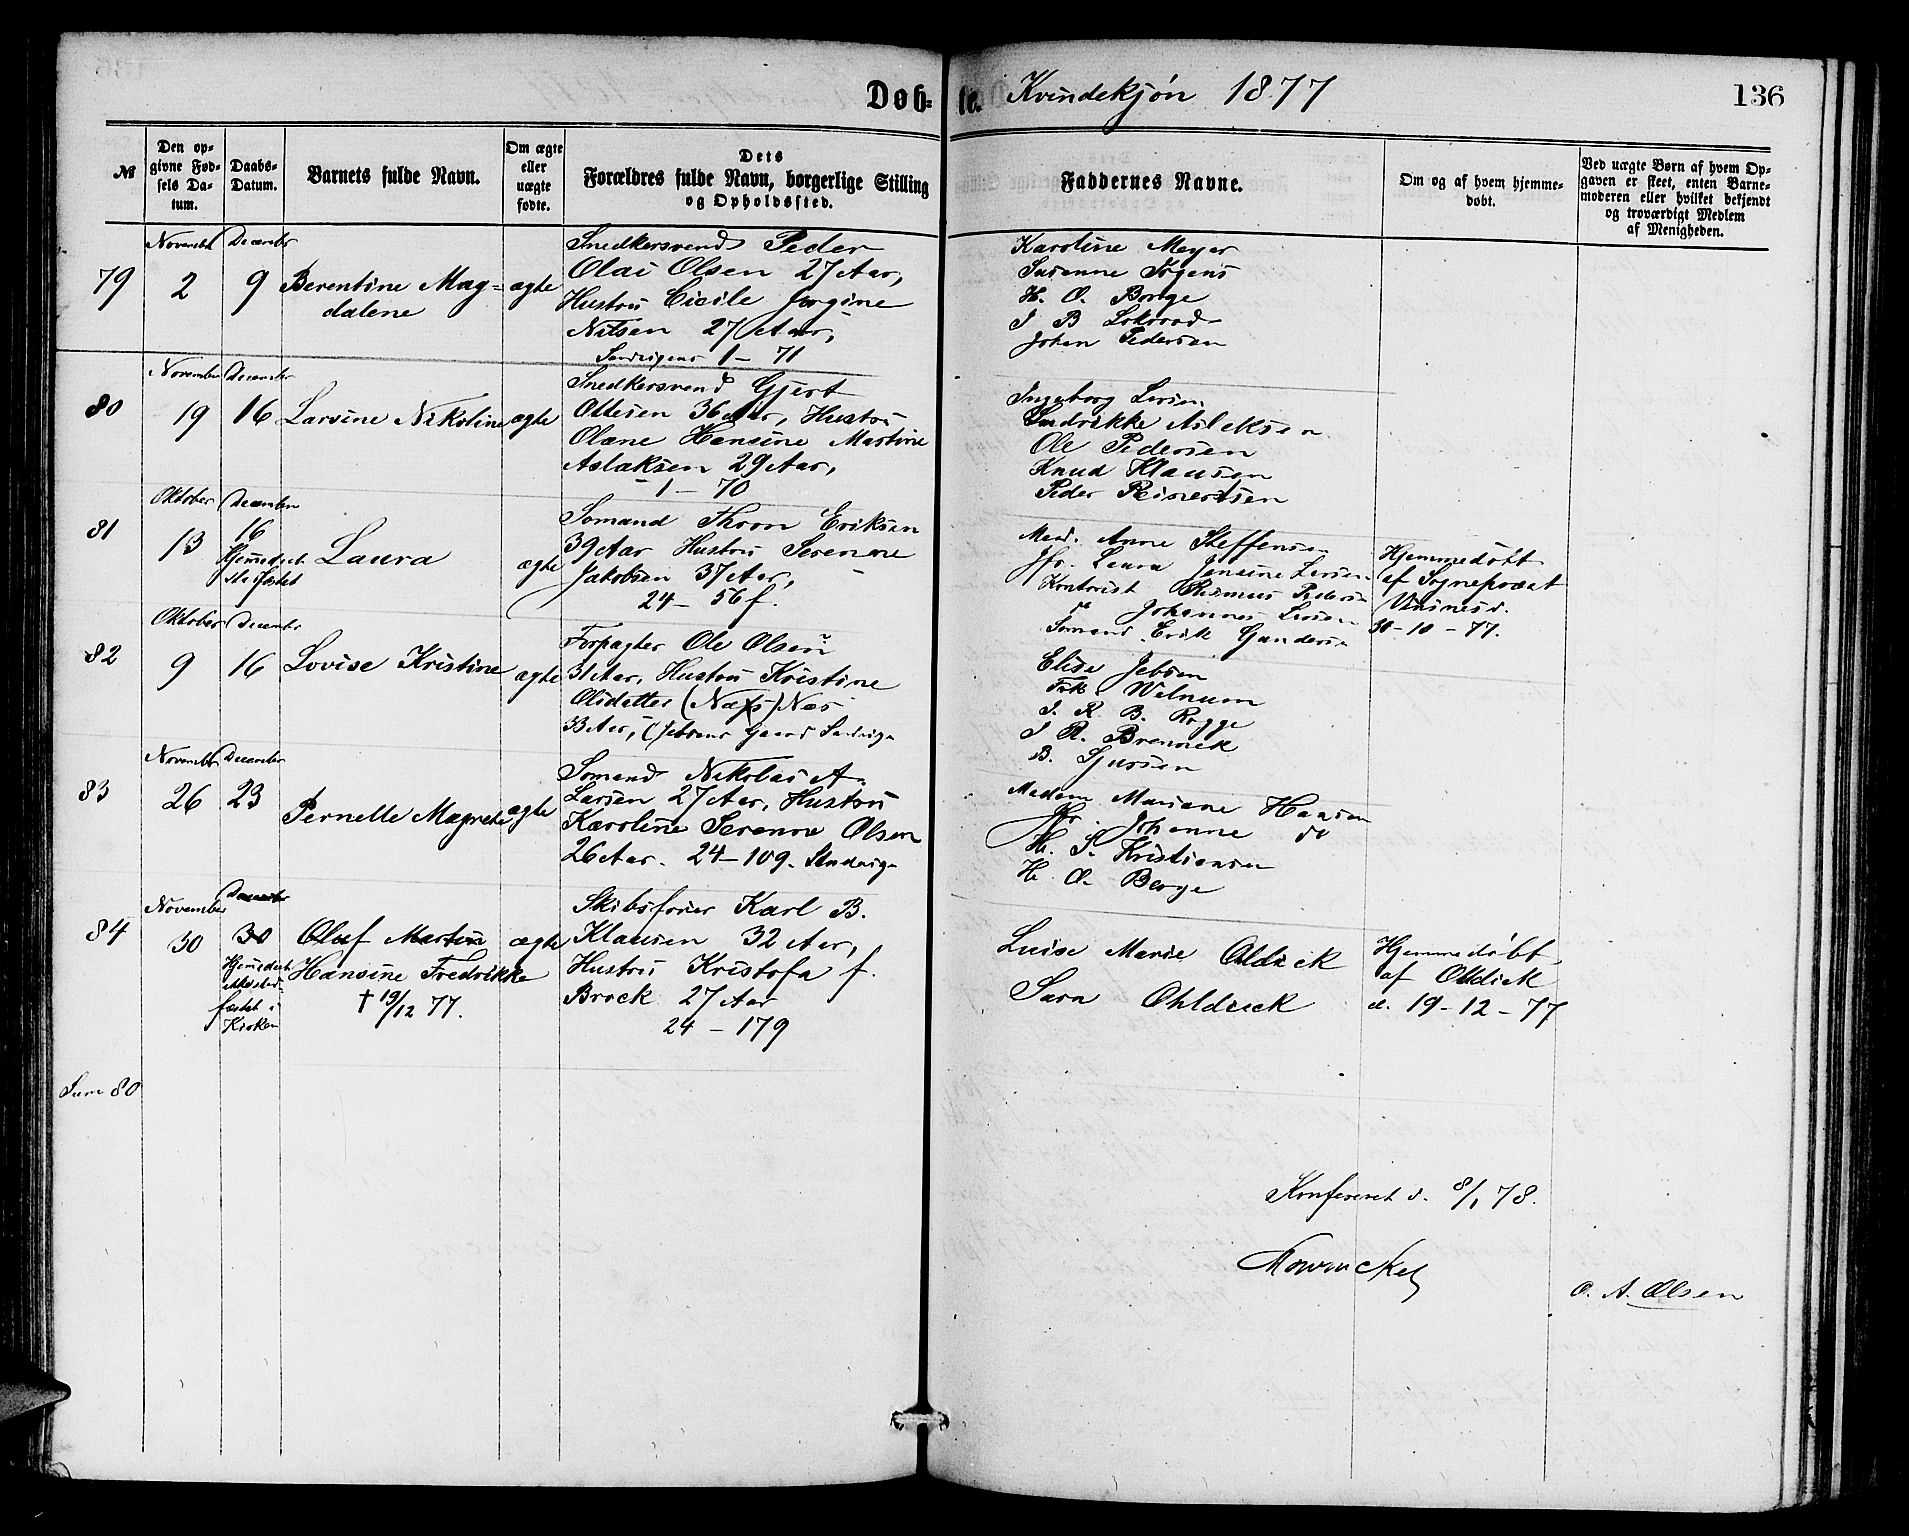 Døb-
te. Kvindekjøn 1877
136
№
Den op-
givne Fød-
sels Da-
tum.
Daabs-
Datum.
Barnets fulde Navn.
Om ægte
eller
uægte
fødte.
Dets
Forældres fulde Navn, borgerlige Stilling
og Opholdssted.
Faddernes Navne.
Om og af hvem hjemme-
døbt.
Ved uægte Børn af hvem Op-
gaven er skeet, enten Barne-
moderen eller hvilket bekjendt
og troværdigt Medlem
af Menigheden.
79
November
2
December
9
Berentine Mag-
dalene
ægte
Snedkersvend Peder
Olai Olsen 27 Aar,
Hustru Cicile Jørgine
Nilsen 27 Aar,
Sandvigens 1 – 71
Karoline Meyer
Susanne
H. O. Borge
J B
Johan Pedersen
80
November
19
December
16
Larsine Nikoline
ægte
Snedkersvend Gjert
Ottesen 36 Aar, Hustru
Olane Hansine Martine
Aslaksen 29 Aar,
1 – 70
Ingeborg
Aslaksen
Ole Pedersen
Knud Klausen
Peder Reinertsen
81
Oktober
13
December
16
Hjemmedøbt
Laura
ægte
Sømand Thron Eriksen
39 Aar Hustru Serenne
Jakobsen 37 Aar,
24 – 56 f.
Mad. Anne Steffensen
Jfr. Laura Jensine
Kontorist Rasmus
do Johannes
Sømand Erik
Hjemmedøbt
af Sognepræst
30 – 10 – 77.
82
Oktober
9
December
16
Lovise Kristine
ægte
Forpagter Ole Olsen
31 Aar, Hustru Kristine
Olsdatter (Næss) Næs
33 Aar, (Jebsens Gaard Sandvigen
Elise Jebsen
Frk. Welnum
J. R. B. Rogge
J R.
B. Sjursen
83
November
26
December
23
Pernelle Magrete
ægte
Sømand Nikolai A.
Larsen 27 Aar, Hustru
Karoline Serenne Olsen
26 Aar. 24 – 109. Sandvigen
Madam Mariane Hansen
Jfr. Johanne do
H. S. Kristiansen
H. O. Borge
84
November
30
December
30
Hjemmedøbt
fæstet i
Kirken
Oluf Martin
Hansine Fredrikke
† 19/12 77.
ægte
Skibsfører Karl B.
Klausen 32 Aar,
Hustru Kristofa f.
Brock 27 Aar
24 – 179
Luise Marie Oldick
Sara Ohldieck
Hjemmedøbt
af Oldick
d. 19 – 12 – 77
Sum 80
Konfereret d. 8/1 78.
Mowinckel
O. A. Olsen